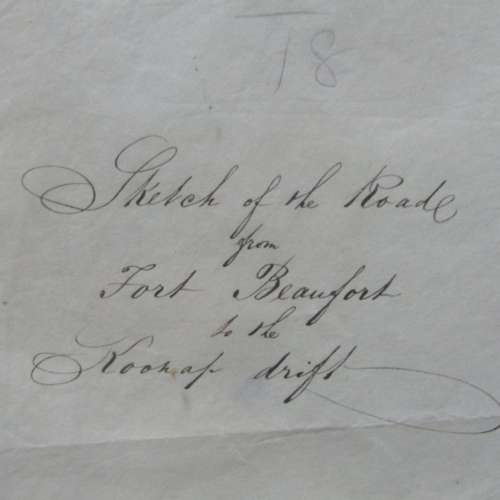 T8
Sketch of the Road
from
Fort Beaufort
to the
Koonap drift